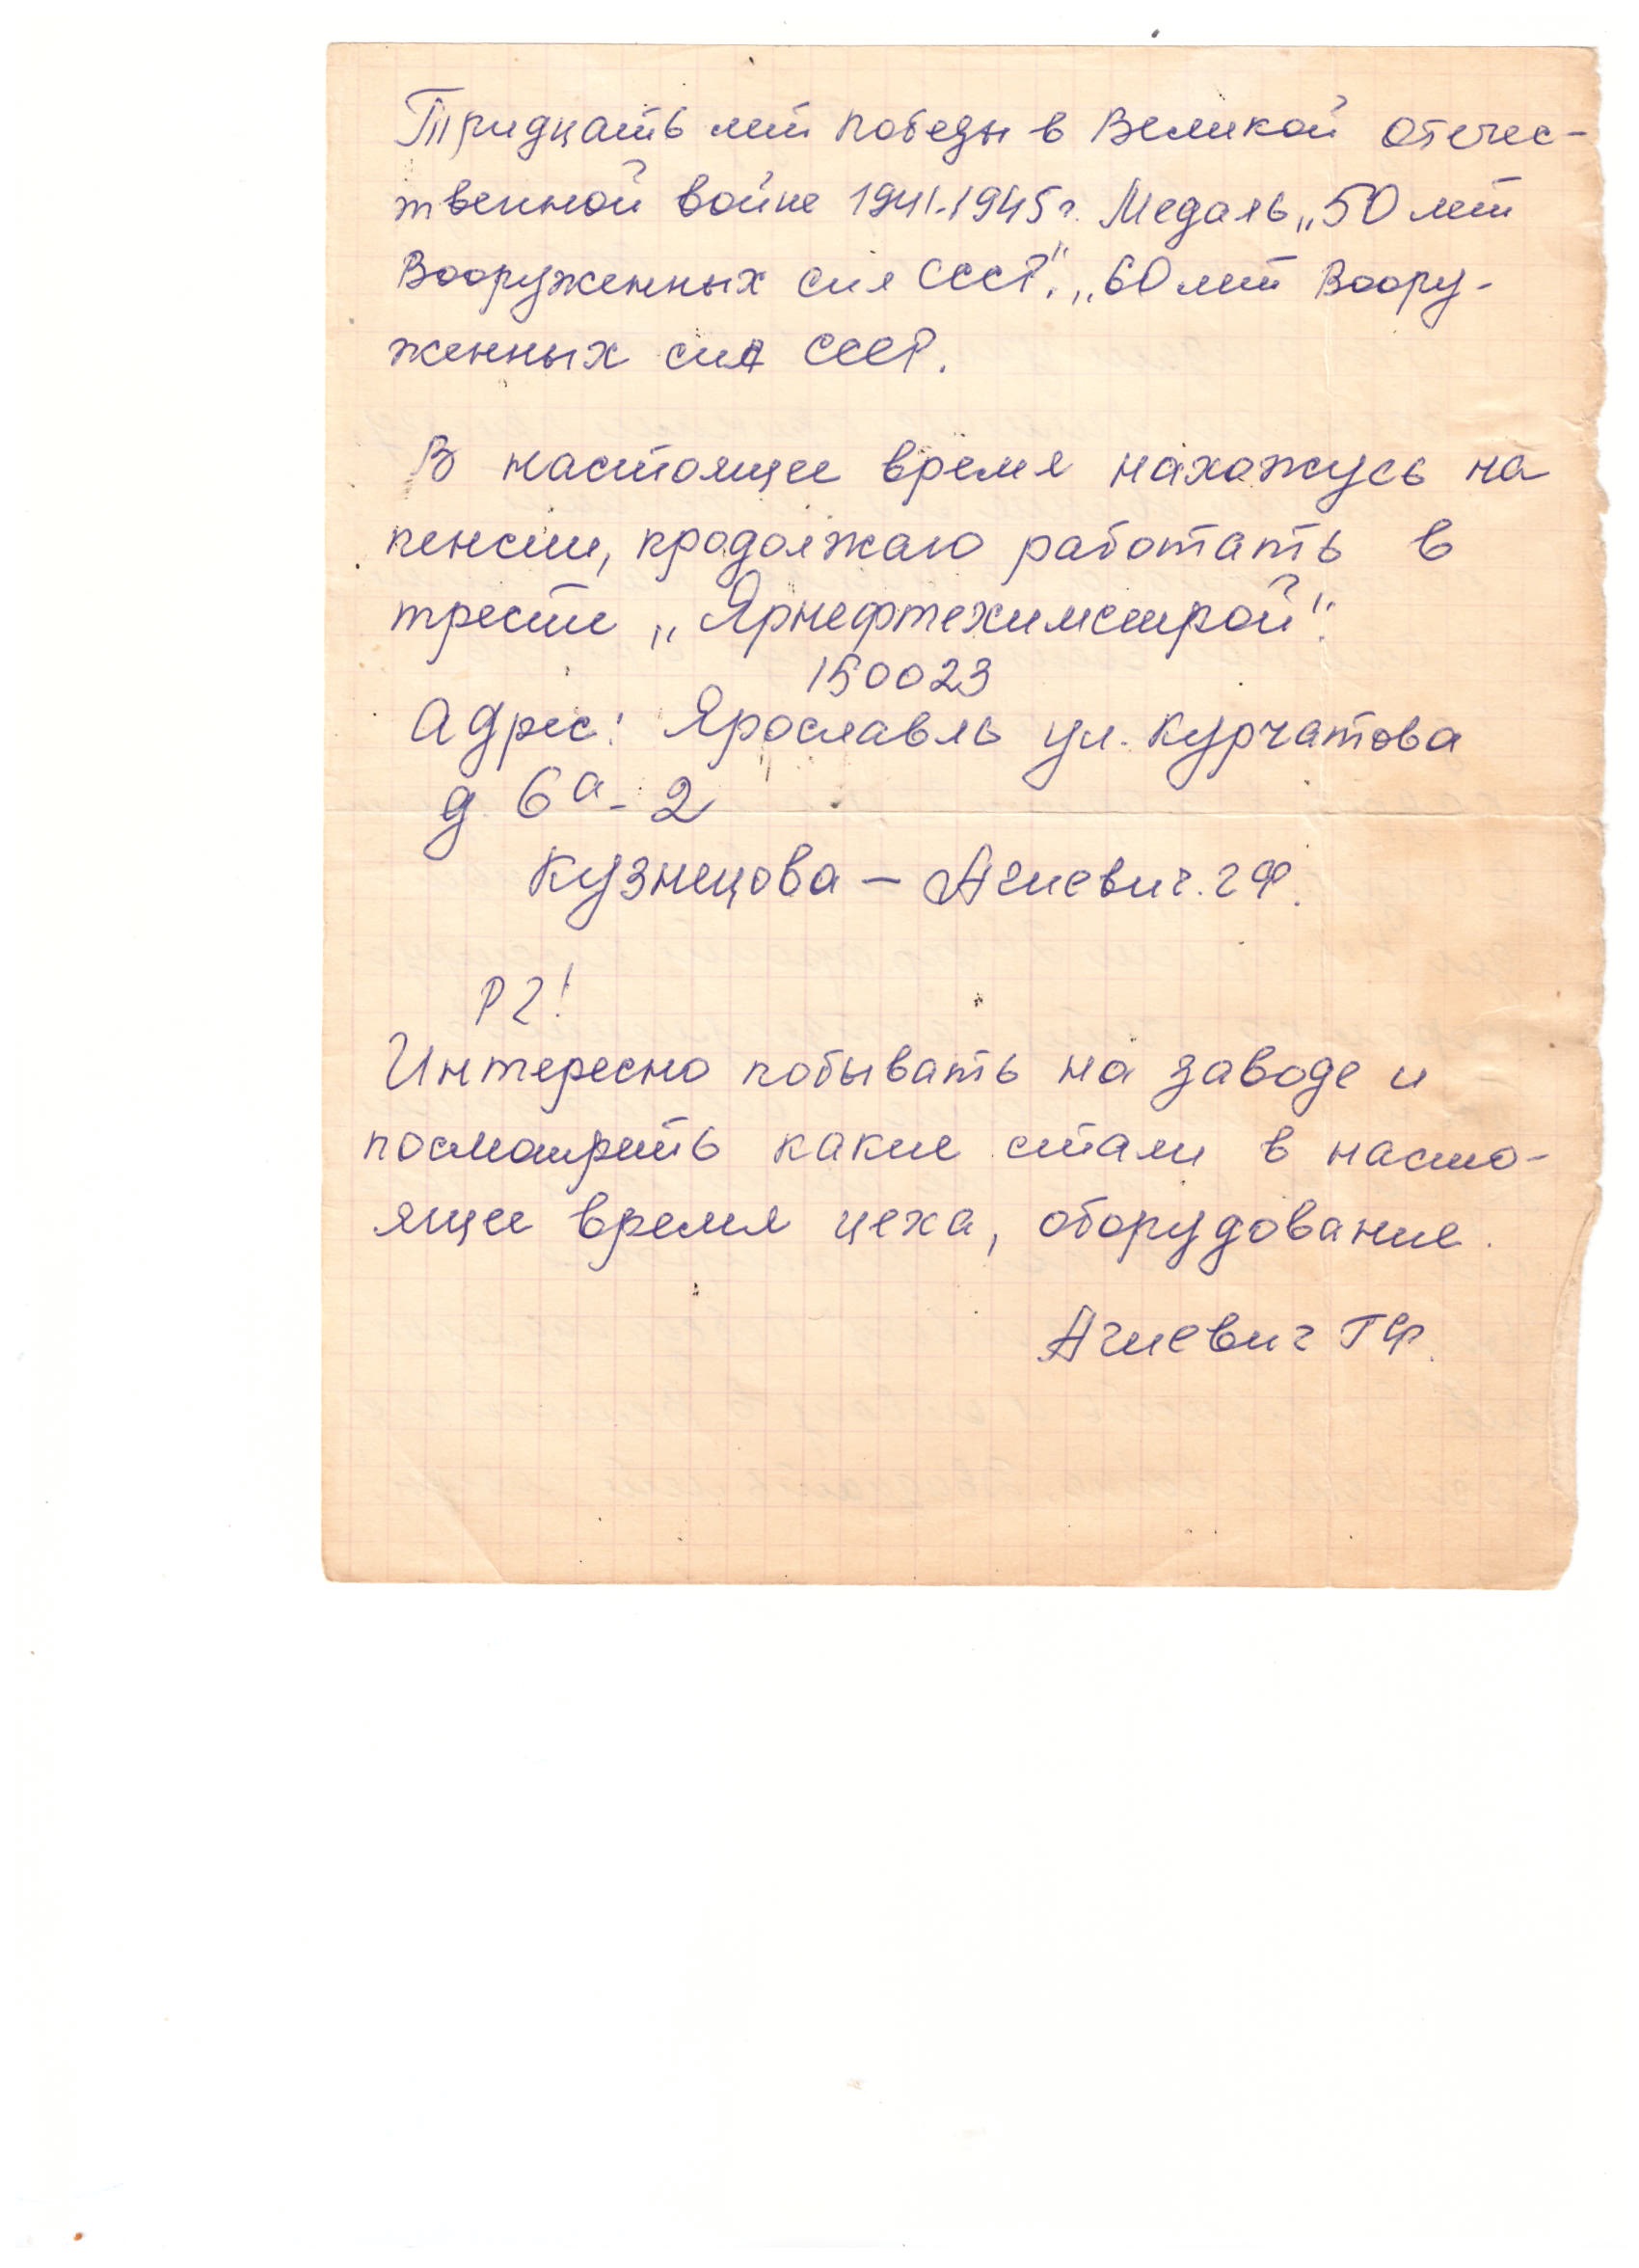 Тридцать лет победы в Великой Отечес-
твенной войне 1941-1945г. Медаль „50 лет
Вооруженных сил СССР". „60 лет Воору-
женных сил СССР.
В настоящее время нахожусь на
пенсии, продолжаю работать в
тресте „Ярнефтехимстрой".
150023
Адрес: Ярославль ул. Курчатова
д 6а- 2
Кузнецова - Агиевич. гФ.
P2!
Интересно побывать на заводе и
посмотреть какие стали в насто-
ящее время цеха, оборудование.
Агиевич ГФ.